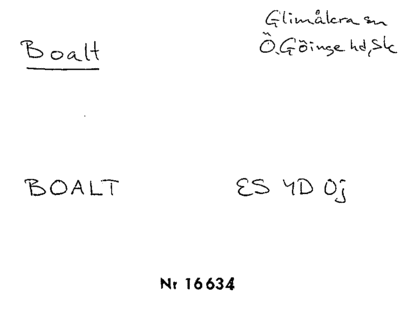 Glimåkra sn
Boalt
Ö. Göinge hd, Sk
BOALT ES 4D 0j
Nr 16634